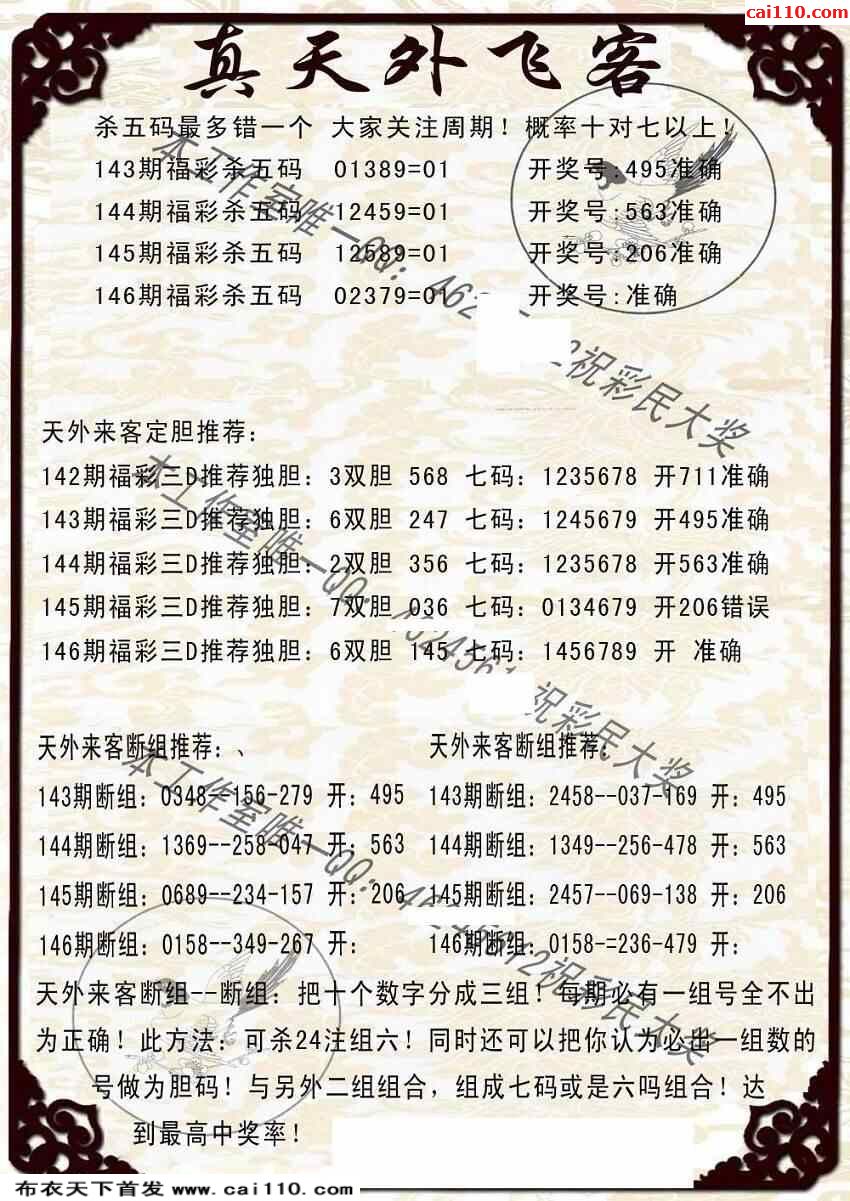 cai110.com
真天外飞客
杀五码最多错一个 大家关注周期！概率十对七以上！
143期福彩杀五码 01389=01 开奖号:495准确
144期福彩杀五码 12459=01 开奖号:563准确
145期福彩杀五码 12589=01 开奖号:206准确
146期福彩杀五码 02379=01 开奖号:准确
天外来客定胆推荐：
142期福彩三D推荐独胆：3双胆 568 七码：1235678 开711准确
143期福彩三D推荐独胆：6双胆 247 七码：1245679 开495准确
144期福彩三D推荐独胆：2双胆 356 七码：1235678 开563准确
145期福彩三D推荐独胆：7双胆 036 七码：0134679 开206错误
146期福彩三D推荐独胆：6双胆 145 七码：1456789 开 准确
天外来客断组推荐：、
143期断组：0348--156-279 开：495
144期断组：1369--258-047 开：563
145期断组：0689--234-157 开：206
146期断组：0158--349-267 开：
天外来客断组推荐：
143期断组：2458--037-169 开：495
144期断组：1349--256-478 开：563
145期断组：2457--069-138 开：206
146期断组：0158-=236-479 开：
天外来客断组--断组：把十个数字分成三组！每期必有一组号全不出
为正确！此方法：可杀24注组六！同时还可以把你认为必出一组数的
号做为胆码！与另外二组组合，组成七码或是六吗组合！达
到最高中奖率！
本工作室唯一QQ：462 祝彩民大奖
本工作室唯一QQ： 祝彩民大奖
本工作室唯一QQ： 祝彩民大奖
布衣天下首发 www.cai110.com